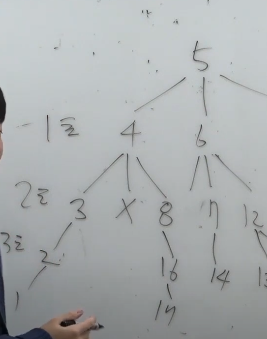 5
1초 4 6
2초 3 X 8 7 12
3초 2 16 14
1 17